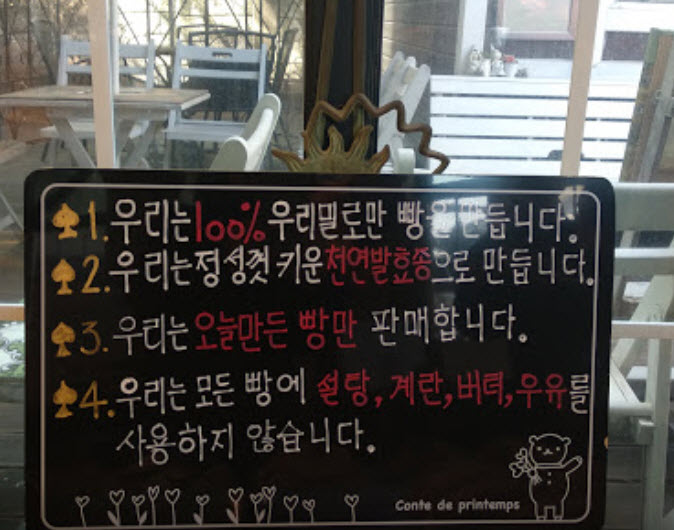 ♠1. 우리는 100% 우리밀로만 빵을 만듭니다.
♠2. 우리는 정성껏 키운 천연발효종으로 만듭니다.
♠3. 우리는 오늘만든 빵만 판매합니다.
♠4. 우리는 모든 빵에 설탕, 계란, 버터, 우유를
사용하지 않습니다.
Conte de printemps